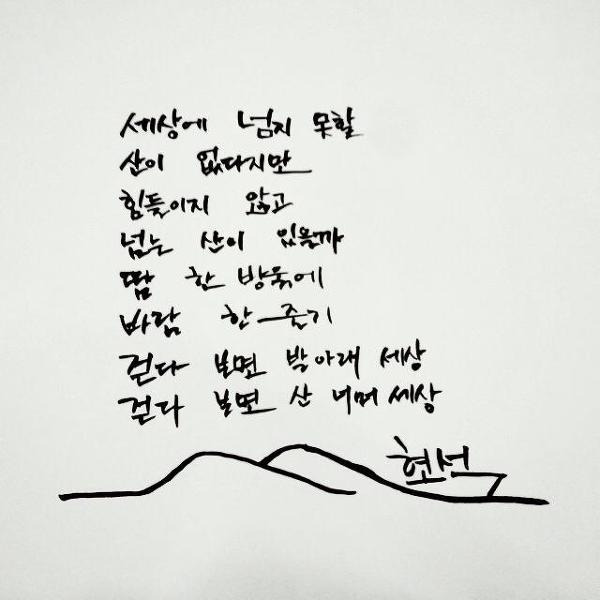 세상에 넘지 못할
산이 없다지만
힘들이지 않고
넘는 산이 있을까
땀 한 방울에
바람 한 줄기
걷다 보면 발 아래 세상
걷다 보면 산 너머 세상
현석